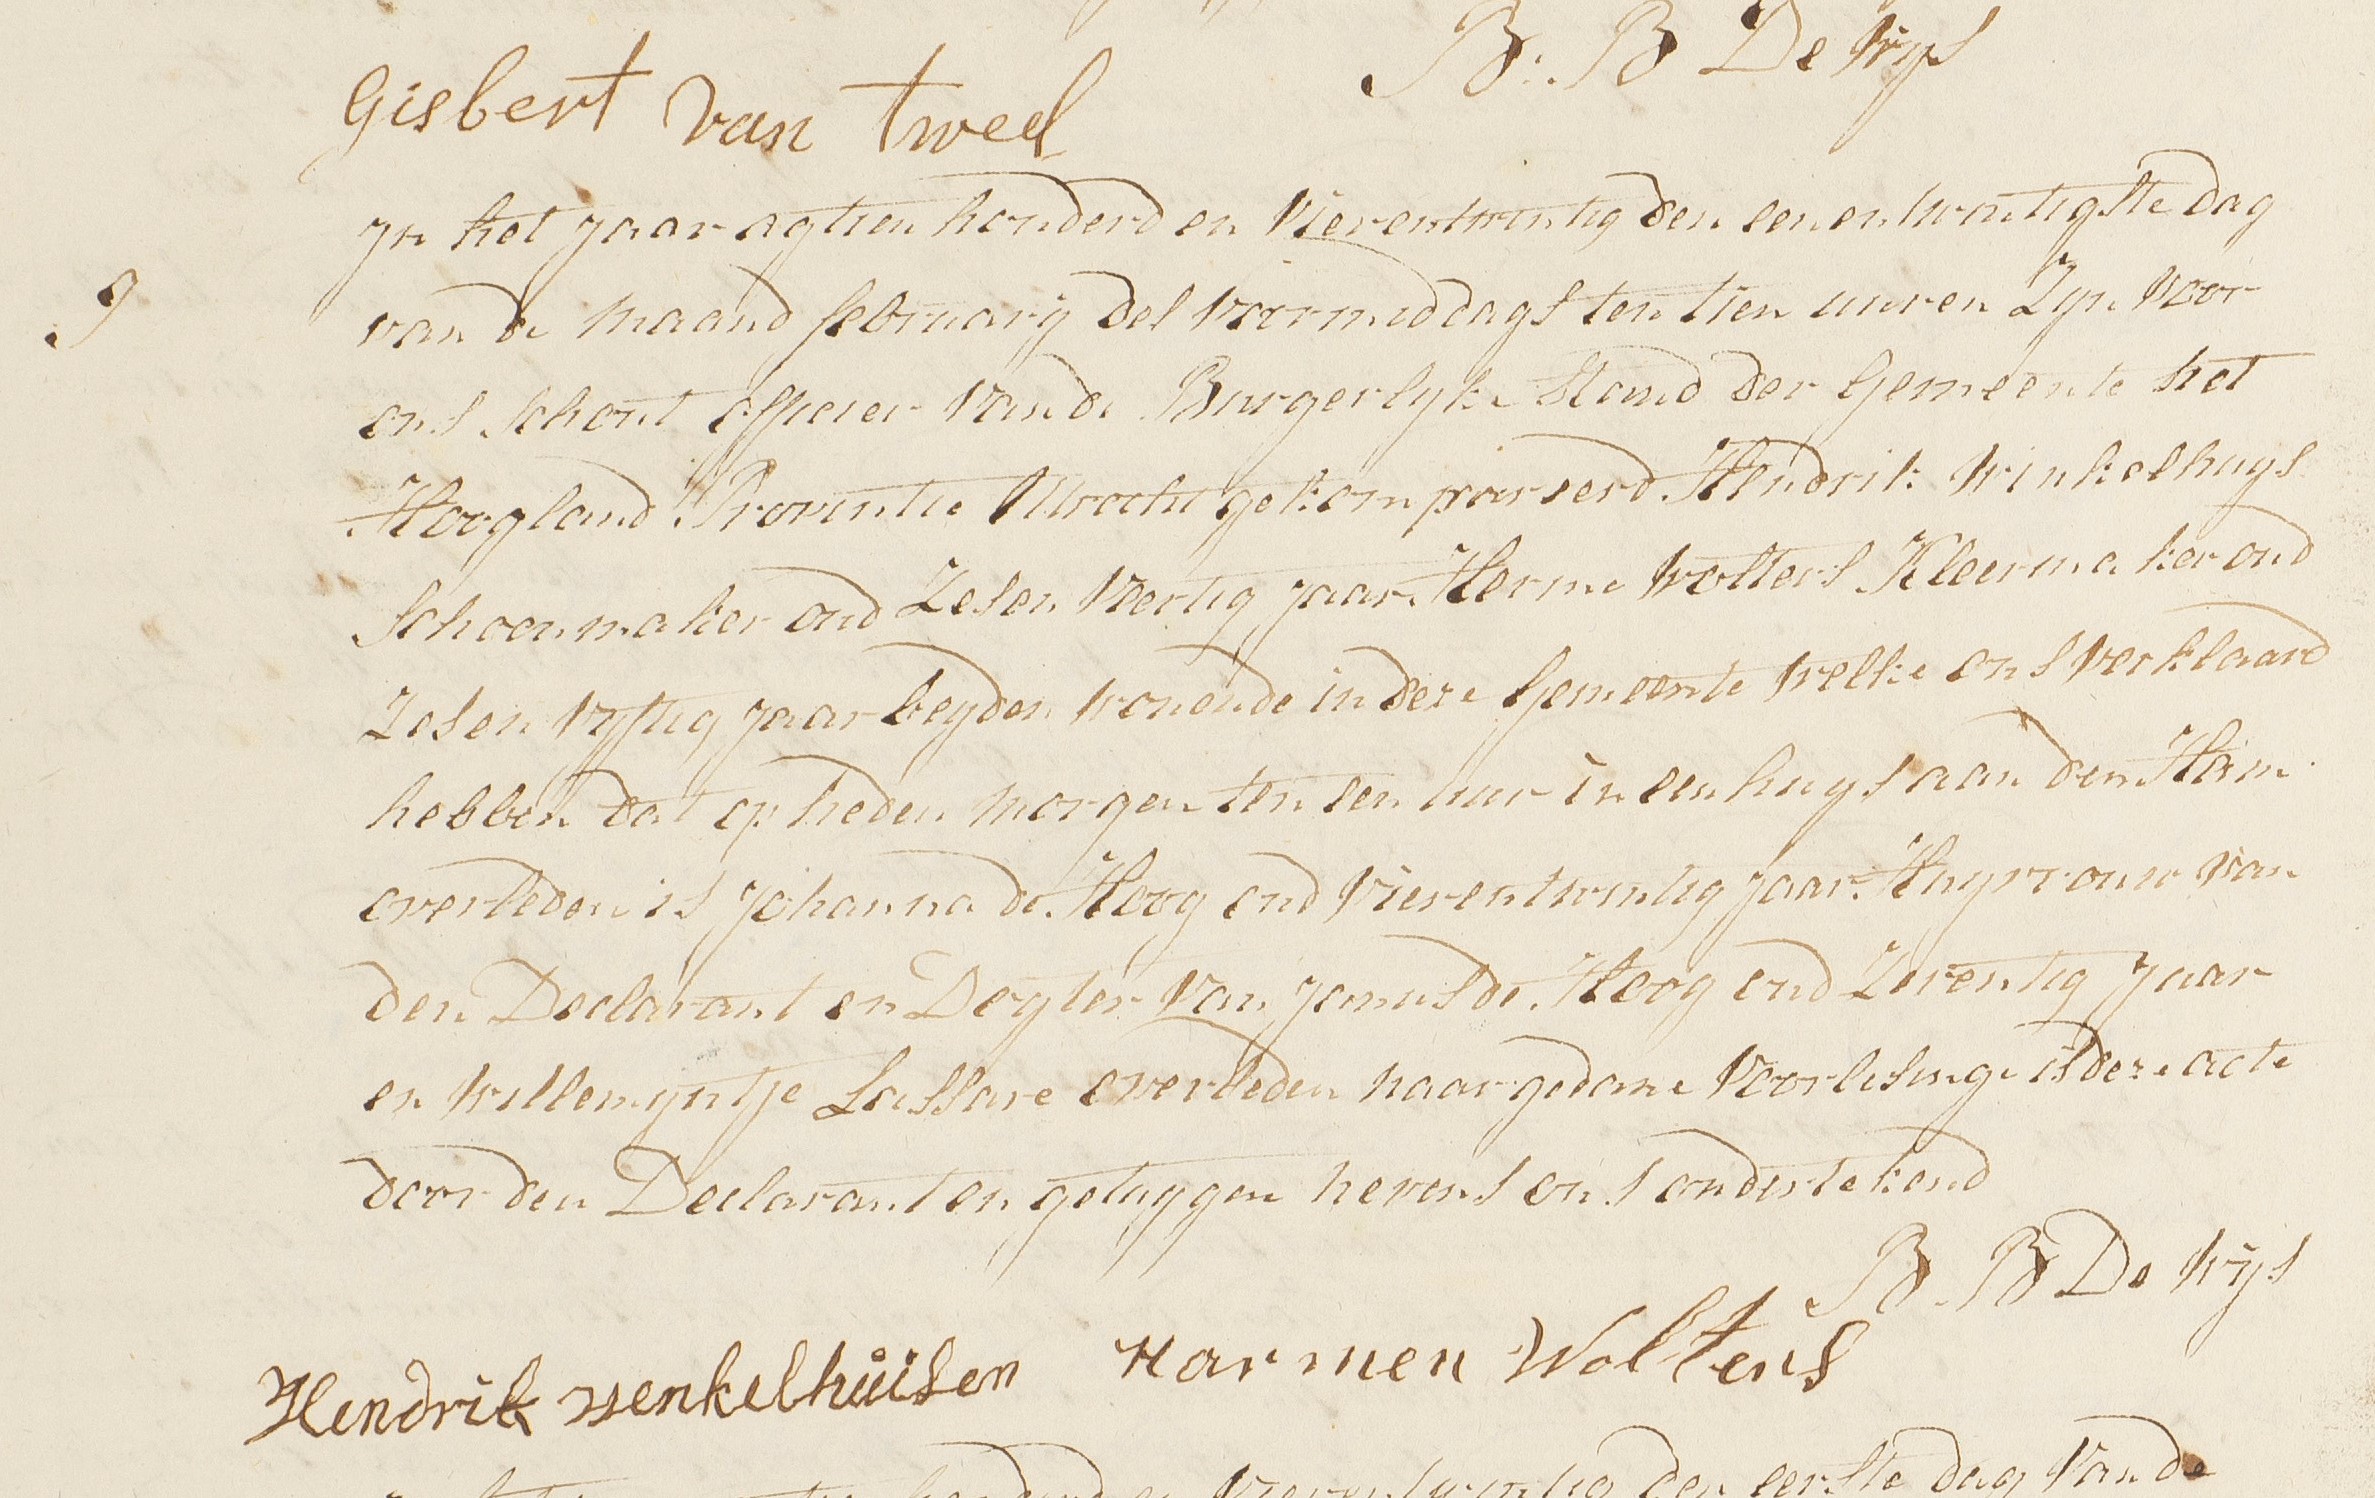 B: B De Wys
Gisbert van tweel
In het Jaar agtien honderd en Vierentwintig den eenentwintigste dag
9
van de maand february des voormiddags ten tien uuren Zyn voor
ons Schout officier van de Burgerlyke Stand der Gemeente het
Hoogland Provintie Utrecht gekompareerd Hendrik Winkelhuys
Schoenmaker oud Zesen Veertig Jaar Herme Wolters Kleermaker oud
Zesen Vyftig Jaar beyden wonende in deze Gemeente welke ons verklaard
hebben dat op heden morgen ten een uur in een huys aan den Ham
overleden is Johanna de Hoog oud Vierentwintig Jaar Huyvrouw van
den Declarant en Dogter van Jannus de Hoog oud Zeventig Jaar
en Willemyntje Lassare overleden naar gedane Voorlesinge is deze acte
door den Declarant en getuygen nevens ons ondertekend
B. B De Wijs
Hendrik Wenkelhuisen Harmen Woltens
honderd en Vierentwintig den eerste dag van de